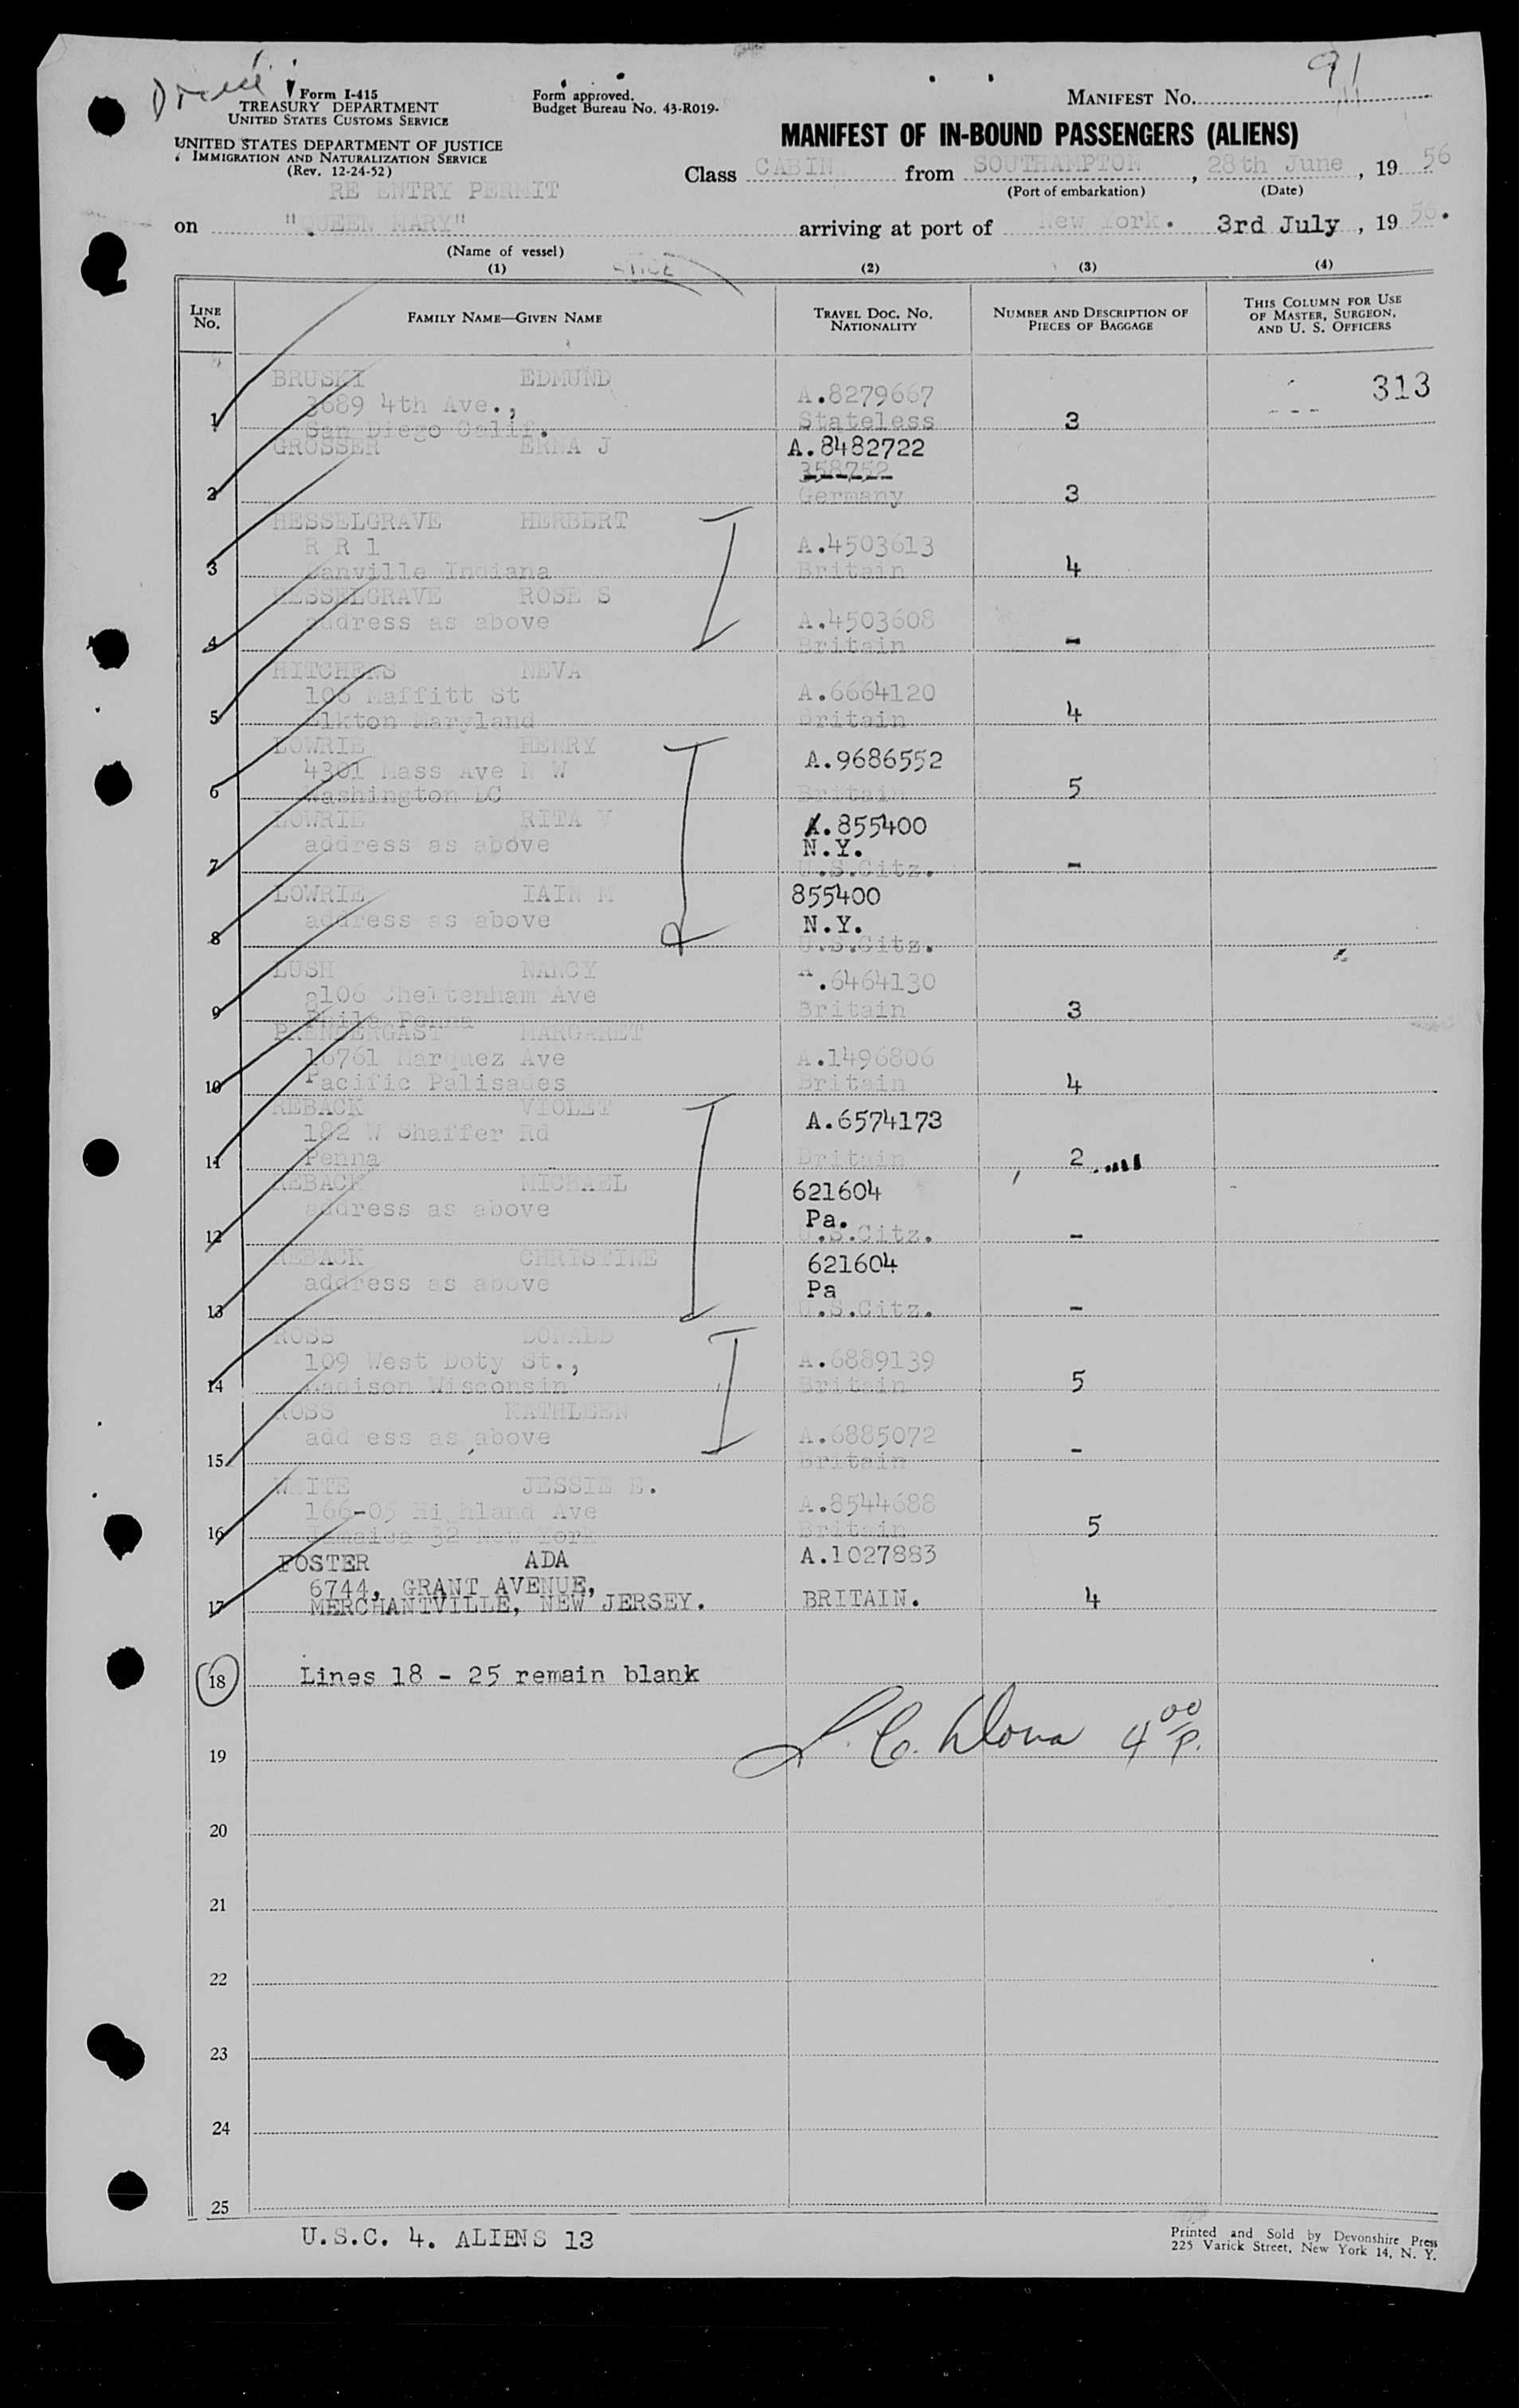 91
Form I-415
TREASURY DEPARTMENT
UNITED STATES CUSTOMS SERVICE
Form approved.
Budget Bureau No. 43-R019-
MANIFEST NO.
UNITED STATES DEPARTMENT OF JUSTICE
IMMIGRATION AND NATURALIZATION SERVICE
(Rev. 12-24-52)
MANIFEST OF IN-BOUND PASSENGERS (ALIENS)
RE ENTRY PERMIT
Class CABIN from SOUTHAMPTON, 28th June, 19 56
(Port of embarkation) (Date)
on "QUEEN MARY" arriving at port of New York. 3rd July, 19 56.
(Name of vessel)
(1) (2) (3) (4)
LINE NO.
FAMILY NAME—GIVEN NAME
TRAVEL DOC. NO. NATIONALITY
NUMBER AND DESCRIPTION OF PIECES OF BAGGAGE
THIS COLUMN FOR USE OF MASTER, SURGEON, AND U. S. OFFICERS
313
BRUSKI EDMUND
3689 4th Ave., A.8279667
1 San Diego Calif. Stateless 3
GROSSER ERNA J A.8482722
358752
2 Germany 3
HESSELGRAVE HERBERT
R R 1 A.4503613
3 Danville Indiana Britain 4
HESSELGRAVE ROSE S
4 address as above A.4503608
Britain -
HITCHENS NEVA
106 Maffitt St A.6664120
5 Elkton Maryland Britain 4
LOWRIE HENRY
4301 Mass Ave N W A.9686552
6 Washington DC Britain 5
LOWRIE RITA V
address as above A.855400
N.Y.
7 U.S.Citz. -
LOWRIE IAIN M 855400
address as above N.Y.
8 U.S.Citz.
LUSH NANCY
8106 Cheltenham Ave .6464130
9 Phila Penna Britain 3
PRENDERGAST MARGARET
16761 Marquez Ave A.1496806
10 Pacific Palisades Britain 4
REBACK VIOLET
182 W Shaffer Rd A.6574173
11 Penna Britain 2
REBACK MICHAEL 621604
address as above Pa.
12 U.S.Citz. -
REBACK CHRISTINE 621604
address as above Pa
13 U.S.Citz. -
ROSS DONALD
109 West Doty St., A.6889139
14 Madison Wisconsin Britain 5
ROSS KATHLEEN
add ess as above A.6885072
15 Britain -
WHITE JESSIE E.
166-05 Highland Ave A.8544688
16 Jamaica 32 New York Britain 5
FOSTER ADA A.1027883
6744, GRANT AVENUE,
17 MERCHANTVILLE, NEW JERSEY. BRITAIN. 4
18 Lines 18 - 25 remain blank
19
4 00 P.
20
21
22
23
24
25
U.S.C. 4. ALIENS 13
Printed and Sold by Devonshire Press
225 Varick Street, New York 14, N. Y.